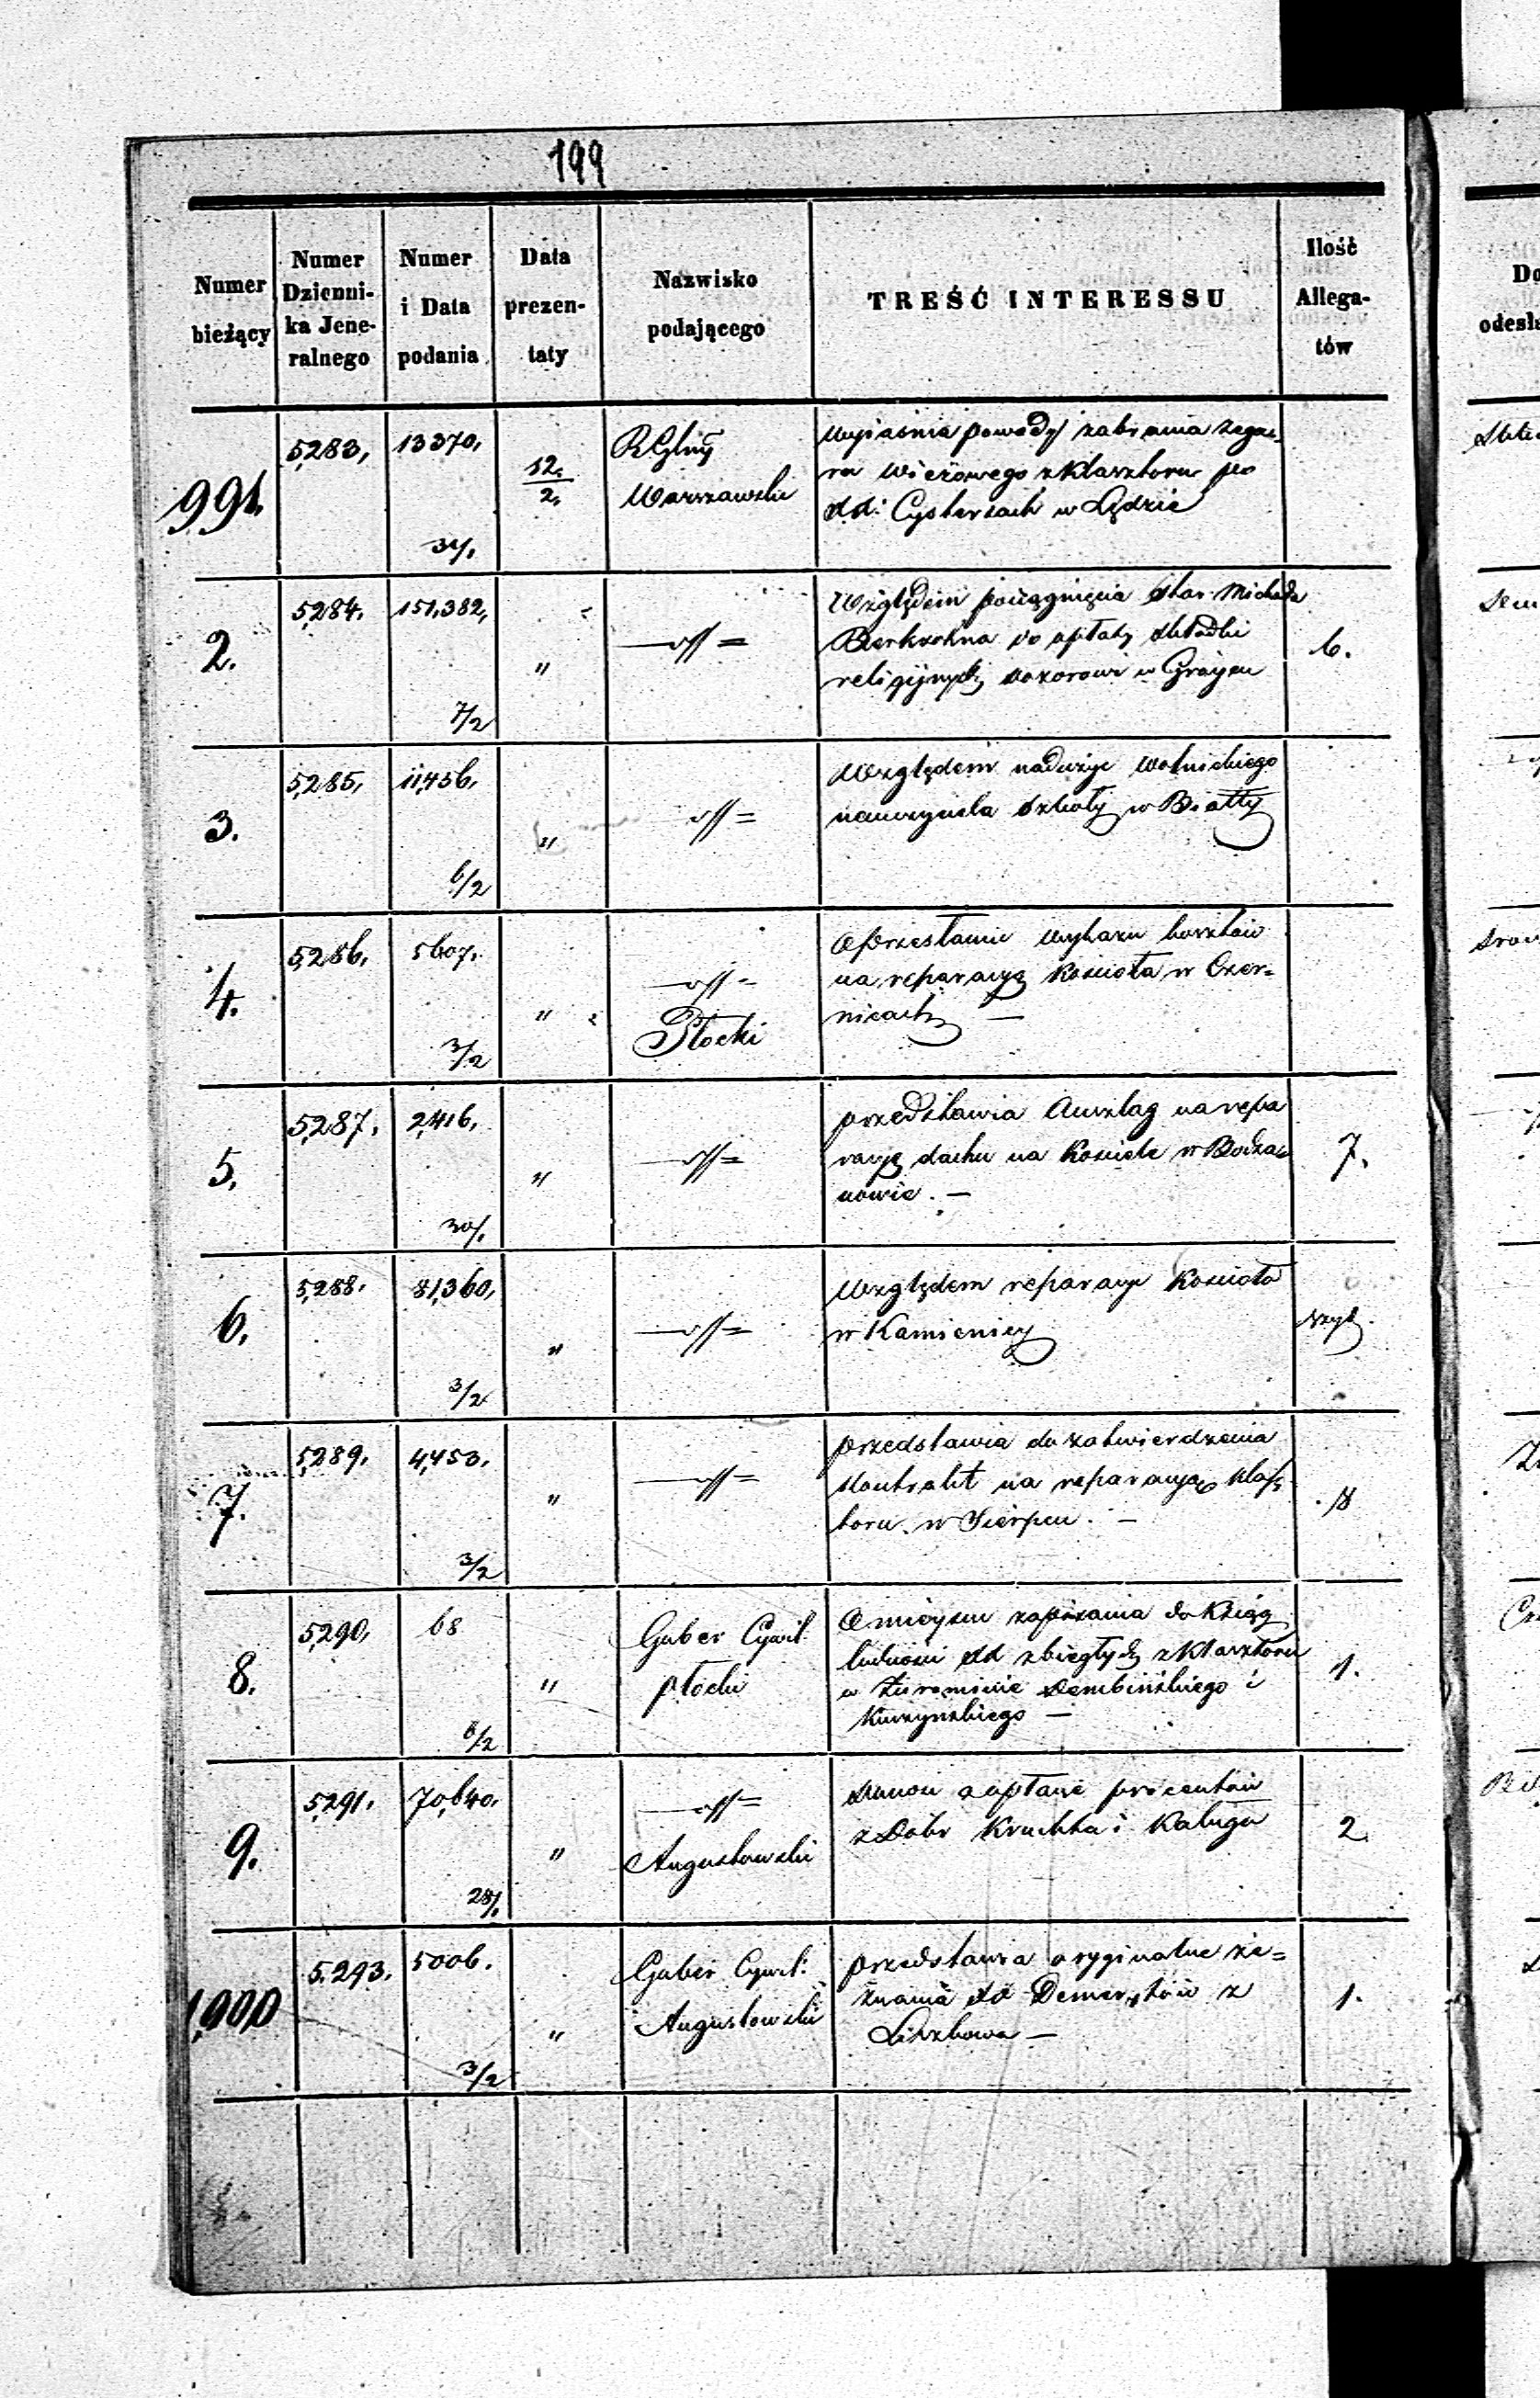 199
Numer bieżący
Numer Dzienni-ka Jene-ralnego
Numer i Data podania
Data prezen-taty
Nazwisko podającego
TREŚĆ INTERESSU
Ilość Allega-tów
991.
5,283,
13370,
3/1.
12. 2.
RGlny
Warszawski
Wyjaśnia powody zabrania zega-
ra wieżowego z Klasztoru po
dd: Cystersach w Lądzie
2.
5,284.
151,382,
7/2
"
—off=
Względem pociągnięcia Star. Michała
do opłaty składki
religijnych dozorowi w Grójcu
6.
3.
5,285,
11,456,
6/2
"
off=
Względem nadużyć Wolnickiego
nauczyciela szkoły w Biatty
4.
5,286,
5607.
3/2
"
—off=
Płocki
O przesłanie wykazu kosztów
na reparacyą Kościoła w Czer-
nicach —
5.
5,287.
2,416,
30/1.
"
—off=
przedstawia Anszlag na repa
racyę dachu na Kościele w Bodza-
nowie. —
7.
6.
5,288.
81,360,
3/2
"
—off=
Względem reparacyi Kościoła
w Kamienicy
7.
5,289.
4,453.
3/2
"
—off=
przedstawia do zatwierdzenia
Kontrakt na reparacyą Klasz
toru w Sierpcu. —
8
8.
5,290,
68
8/2
"
Guber Cywil.
płocki
O miejscu zapisania do Książg
ludności dd zbiegłych z Klasztoru
w Żurominie Dembińskiego i
Kuczyńskiego —
1.
9.
5,291.
70,640,
28/1.
"
—off=
Augustowski
procentów
z Dóbr Kruchka i Kaługa
2.
1,900
5,293.
5006.
3/2
"
Guber Cywil:
Augustowski
przedstawia oryginalne ze=
znania dd Demerytów z
Liszkowa —
1.